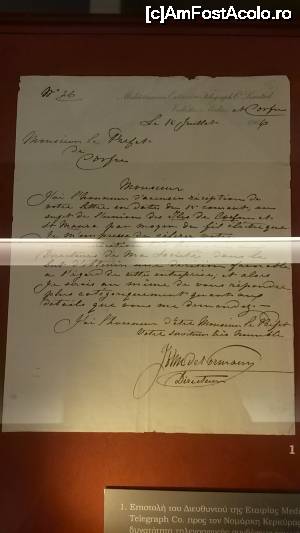 [c]AmFostAcolo.ro
No 26
Mediterranean Extension Telegraph Co. Limited
at Corfou
Le 16 Juillet
Monsieur le Préfet
de
Corfou
Monsieur
J'ai l'honneur d'accuser réception de
votre lettre en date du courant, au
sujet de l'union des Iles de Corfou et
St Maura par moyen du fil électrique
Je m'empresse de
Directeurs de Ma Société dans le
but d'obtenir une décision favorable
à l'égard de cette entreprise, et alors
Je serais au même de vous répondre
plus catégoriquement quant aux
détails que vous me demandez.
J'ai l'honneur d'être Monsieur le Préfet
Votre serviteur très humble
de Normann
Directeur
1
1. Επιστολή του Διευθυντού της Εταιρίας Med
Telegraph Co. προς τον Νομάρχη Κερκύρας